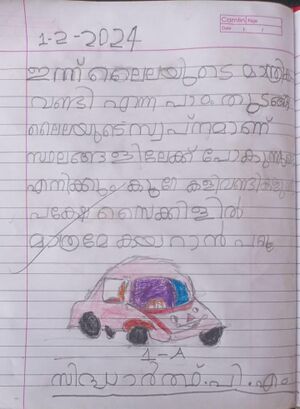 Camlin Page
Date / /
1-2-2024
ഇന്ന് ലൈലയുടെ മാന്ത്രിക
വണ്ടി എന്ന പാഠം തുടങ്ങി
ലൈലയുടെ സ്വപ്നമാണ്
സ്ഥലങ്ങളിലേക്ക് പോകുന്നത്
എനിക്കും കുറേ കളിവണ്ടികളുണ്ട്
പക്ഷേ സൈക്കിളിൽ
മാത്രമേ കയറാൻ പറ്റൂ
1-A
സിദ്ധാർത്ഥ്.പി.എം